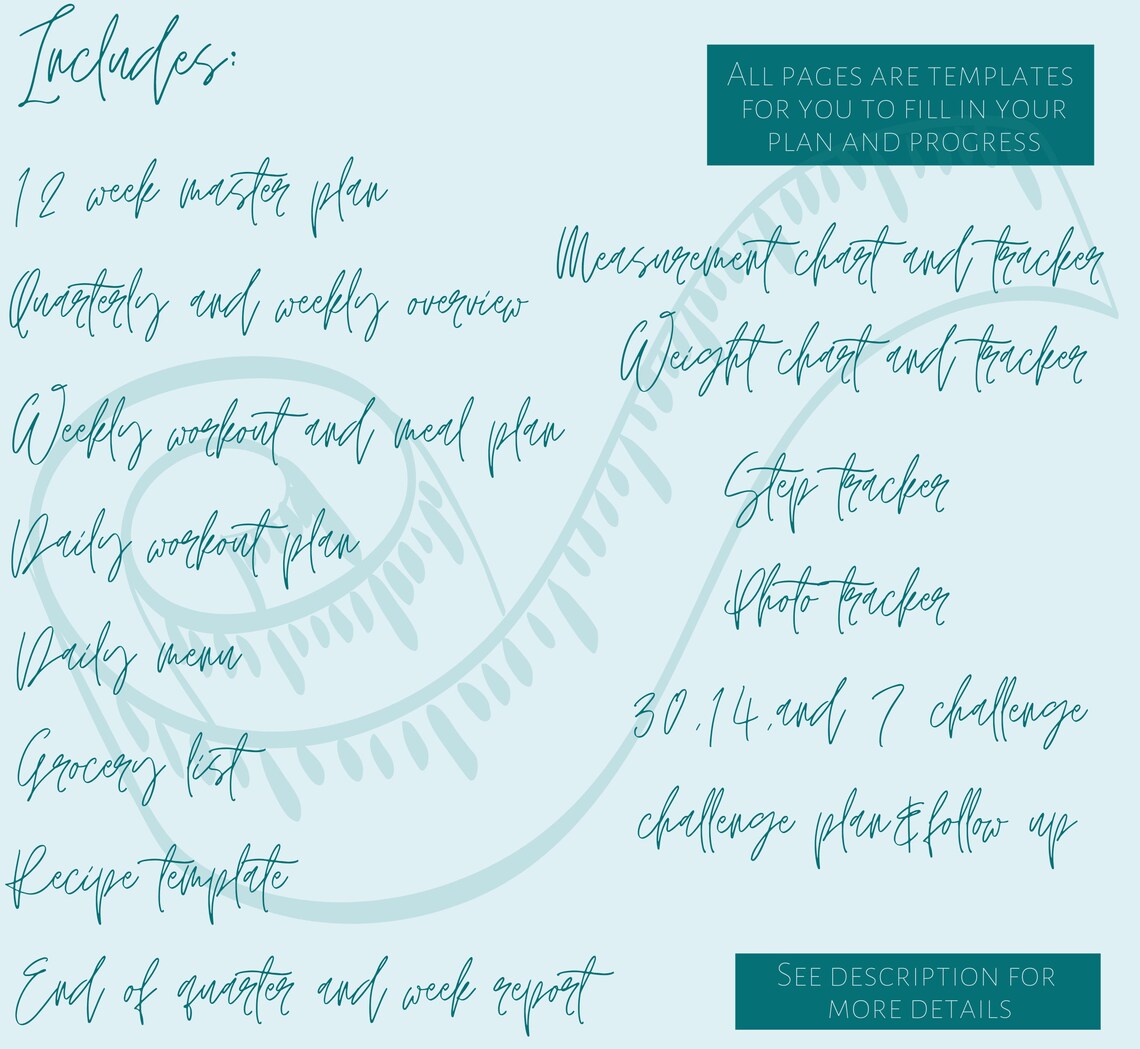 Includes:
12 week master plan
Quarterly and weekly overview
Weekly workout and meal plan
Daily workout plan
Daily menu
Grocery list
Recipe template
End of quarter and week report
ALL PAGES ARE TEMPLATES
FOR YOU TO FILL IN YOUR
PLAN AND PROGRESS
Measurement chart and tracker
Weight chart and tracker
Step tracker
Photo tracker
30,14,and 7 challenge
challenge plan&follow up
SEE DESCRIPTION FOR
MORE DETAILS